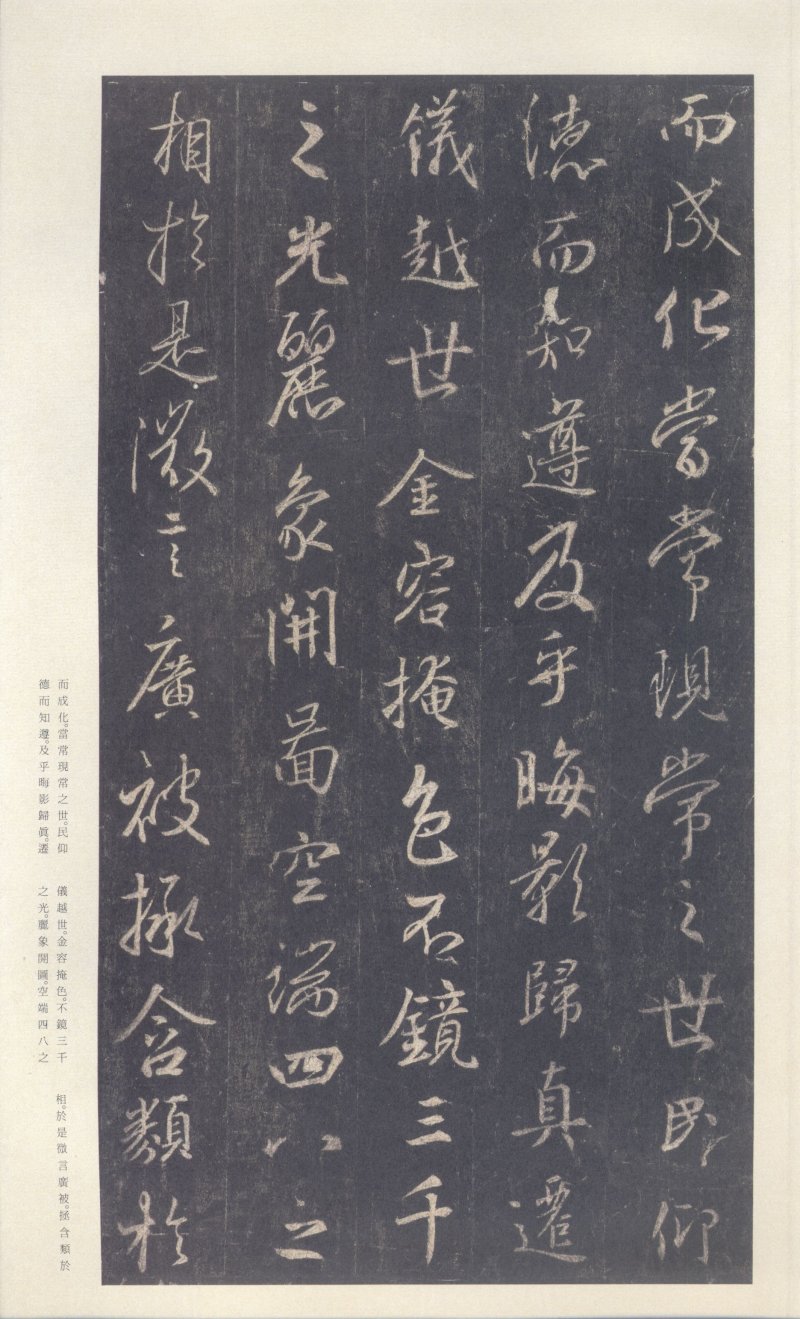 而成化當常現常之世民仰
德而知遵及乎晦影歸真遷
儀越世金容掩色不鏡三千
之光麗象開圖空端四八之
相於是微言廣被拯含類於
而成化。當常現常之世。民仰
德而知遵。及乎晦影歸眞。遷
儀越世。金容掩色。不鏡三千
之光。麗象開圖。空端四八之
相。於是微言廣被。拯含類於